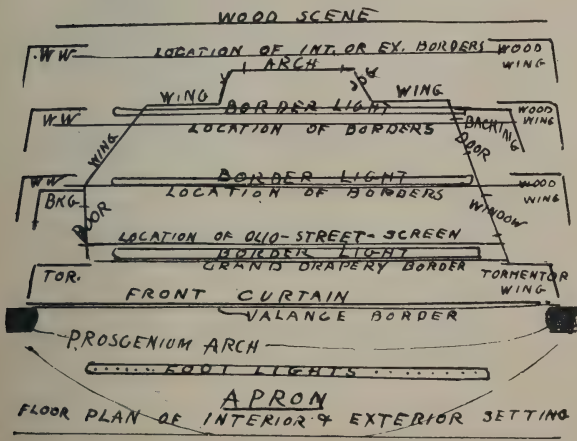 WOOD SCENE
.WW
LOCATION OF INT. OR EX. BORDERS
WOOD WING
ARCH
WING
WING
WW
BORDER LIGHT
WOOD WING
LOCATION OF BORDERS
BACKING
WING
DOOR
WW
BORDER LIGHT
WOOD WING
LOCATION OF BORDERS
BKG
DOOR
WINDOW
LOCATION OF OLIO-STREET-SCREEN
BORDER LIGHT
TOR.
GRAND DRAPERY BORDER
TORMENTOR WING
FRONT CURTAIN
VALANCE BORDER
PROSCENIUM ARCH
FOOT LIGHTS
APRON
FLOOR PLAN OF INTERIOR & EXTERIOR SETTING